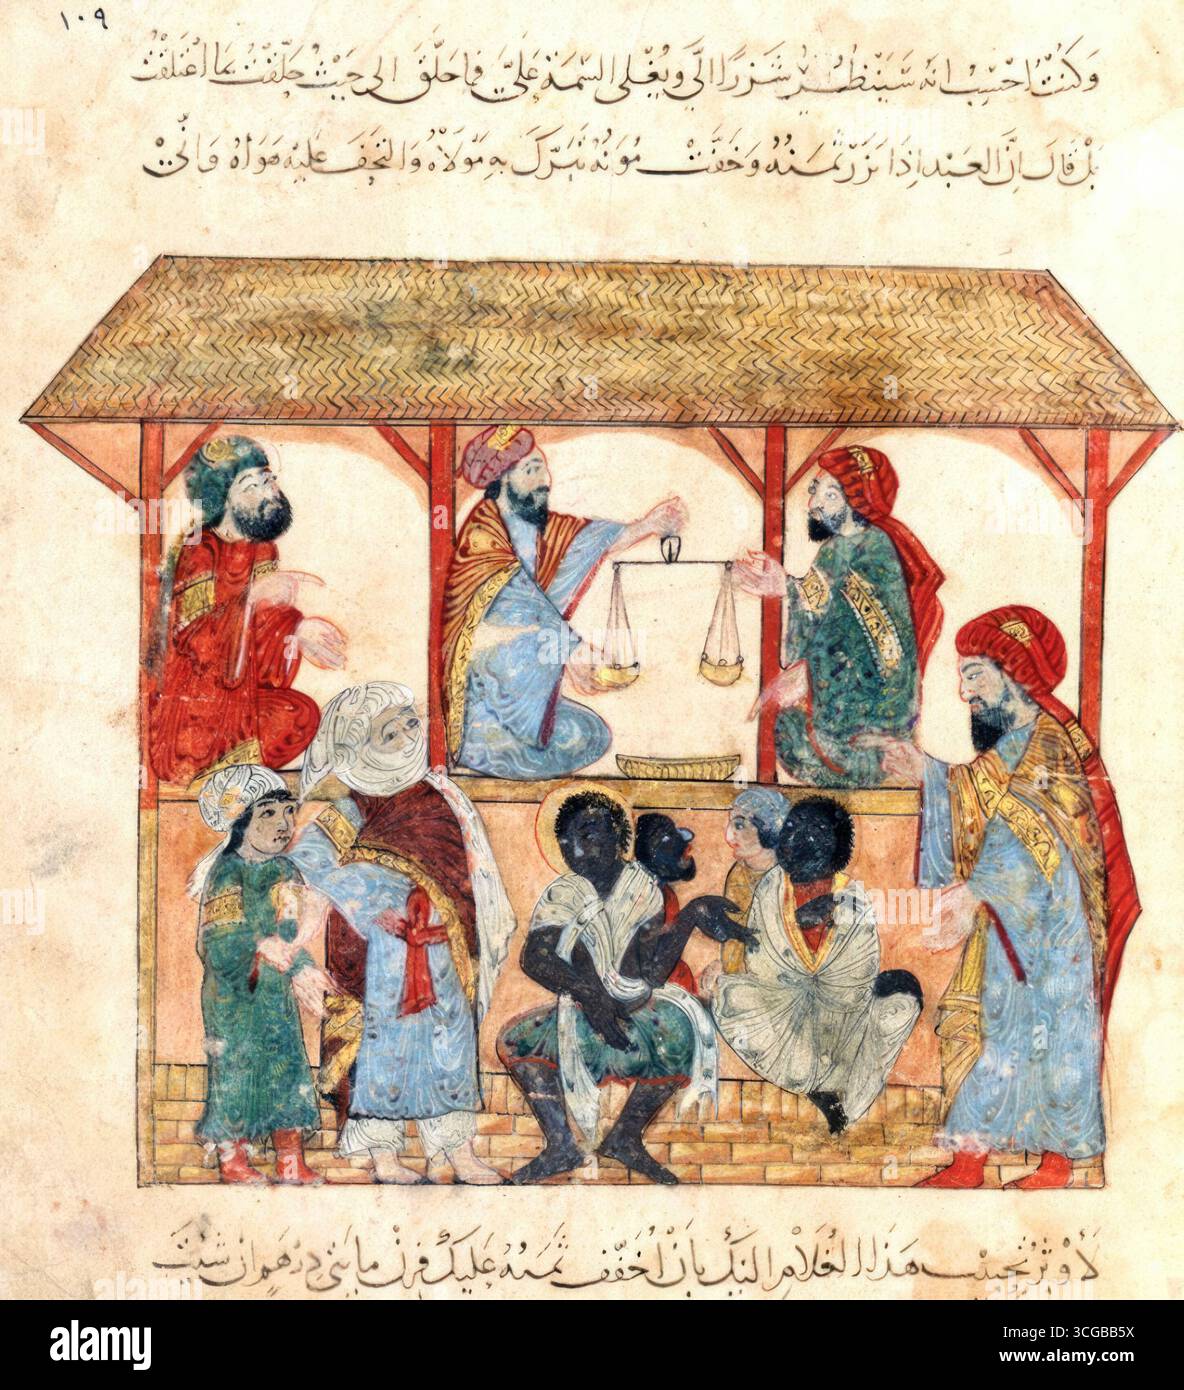 ١٠٩
وَكنتُ احْسِب انه سَينظرُ شزرًا الىّ ويُغلى السّمة عَليّ فما حَلّق الى حَيث حلّقتُ بما اعتلقتُ
بَلْ قال انّ العَبد اذا نَزر ثمنهُ وخفّتْ مُؤنهُ تبرّك بهِ مَولاهُ والتحفَ عليهِ هَواهُ وانّي
لأوثر تحبيب هَذا الغلام اليك بأن أخفّف ثمنهُ عليك فزن مايتي درهم ان شئت
alamy
Image ID: 3CGBB5X
www.alamy.com